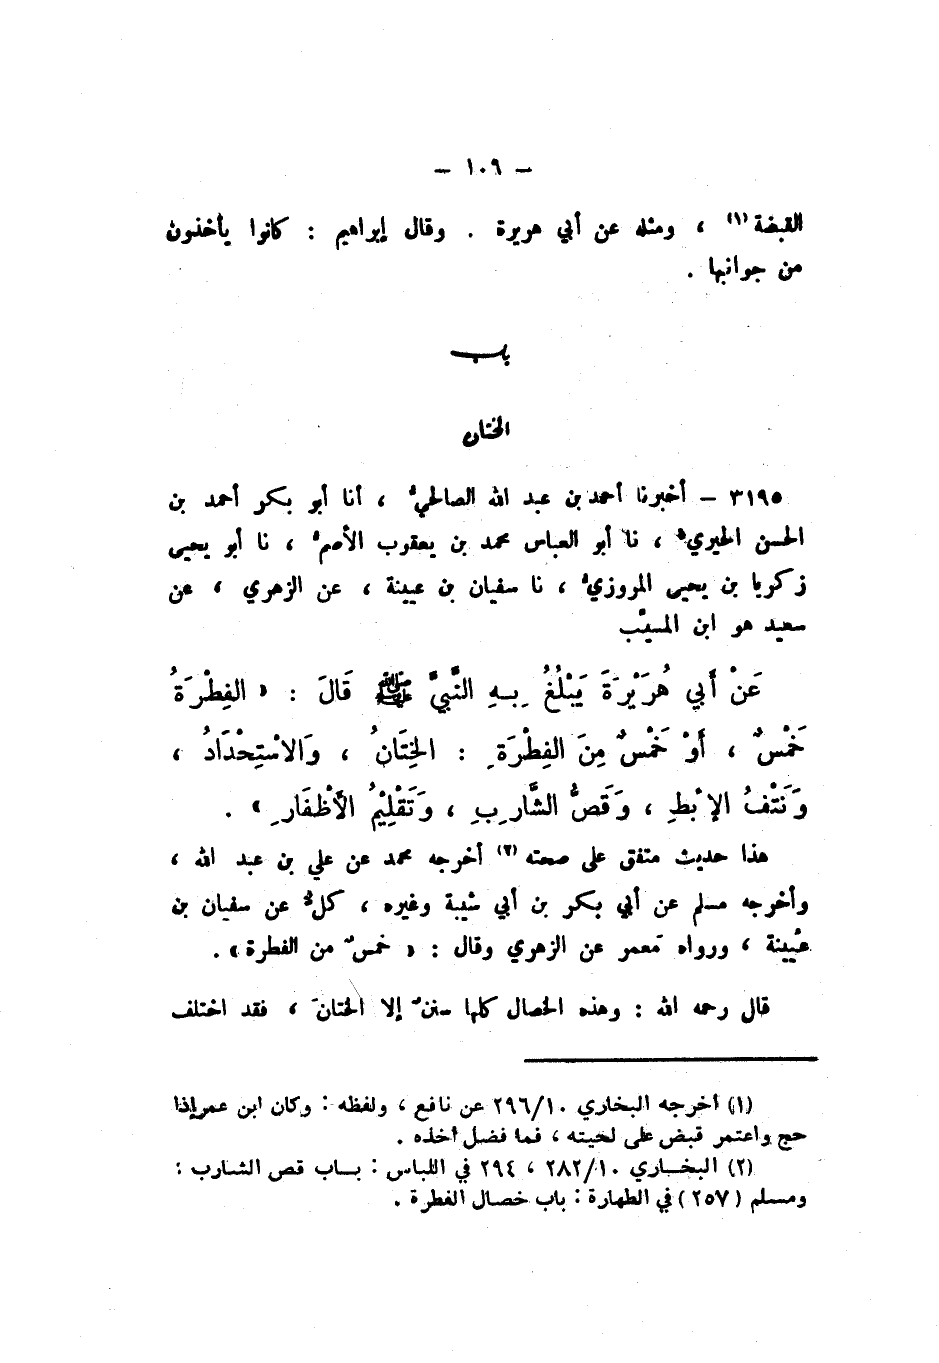 – ١٠٩ –
القبضة (١) ، ومثله عن أبي هريرة . وقال إبراهيم : كانوا يأخذون
من جوانبها .
باب
الختان
٣١٩٥ – أخبرنا أحمد بن عبد الله الصالحيُّ ، أنا أبو بكر أحمد بن
الحسن الحيريُّ ، نا أبو العباس محمد بن يعقوب الأصمُّ ، نا أبو يحيى
زكريا بن يحيى المروزيُّ ، نا سفيان بن عيينة ، عن الزهري ، عن
سعيد هو ابن المسيّب
عَنْ أَبي هُرَيْرَةَ يَبْلُغُ بِهِ النَّبيَّ ﷺ قَالَ : « الفِطْرَةُ
خَمْسٌ ، أَوْ خَمْسٌ مِنَ الفِطْرَةِ : الخِتَانُ ، وَالاسْتِحْدَادُ ،
وَنَتْفُ الإبْطِ ، وَقَصُّ الشَّارِبِ ، وَتَقْلِيْمُ الأَظْفَارِ » .
هذا حديث متفق على صحته (٢) أخرجه محمد عن علي بن عبد الله ،
وأخرجه مسلم عن أبي بكر بن أبي شيبة وغيره ، كلٌّ عن سفيان بن
عُيينة ، ورواه مَعمر عن الزهري وقال : « خمسٌ من الفطرة » .
قال رحمه الله : وهذه الخصال كلها سننٌ إلا الختانَ ، فقد اختلف
(١) أخرجه البخاري ٢٩٦/١٠ عن نافع ، ولفظه : وكان ابن عمر إذا
حج واعتمر قبض على لحيته ، فما فضل أخذه .
(٢) البخــاري ٢٨٢/١٠ ، ٢٩٤ في اللباس : بــاب قص الشارب :
ومسلم (٢٥٧) في الطهارة : باب خصال الفطرة .